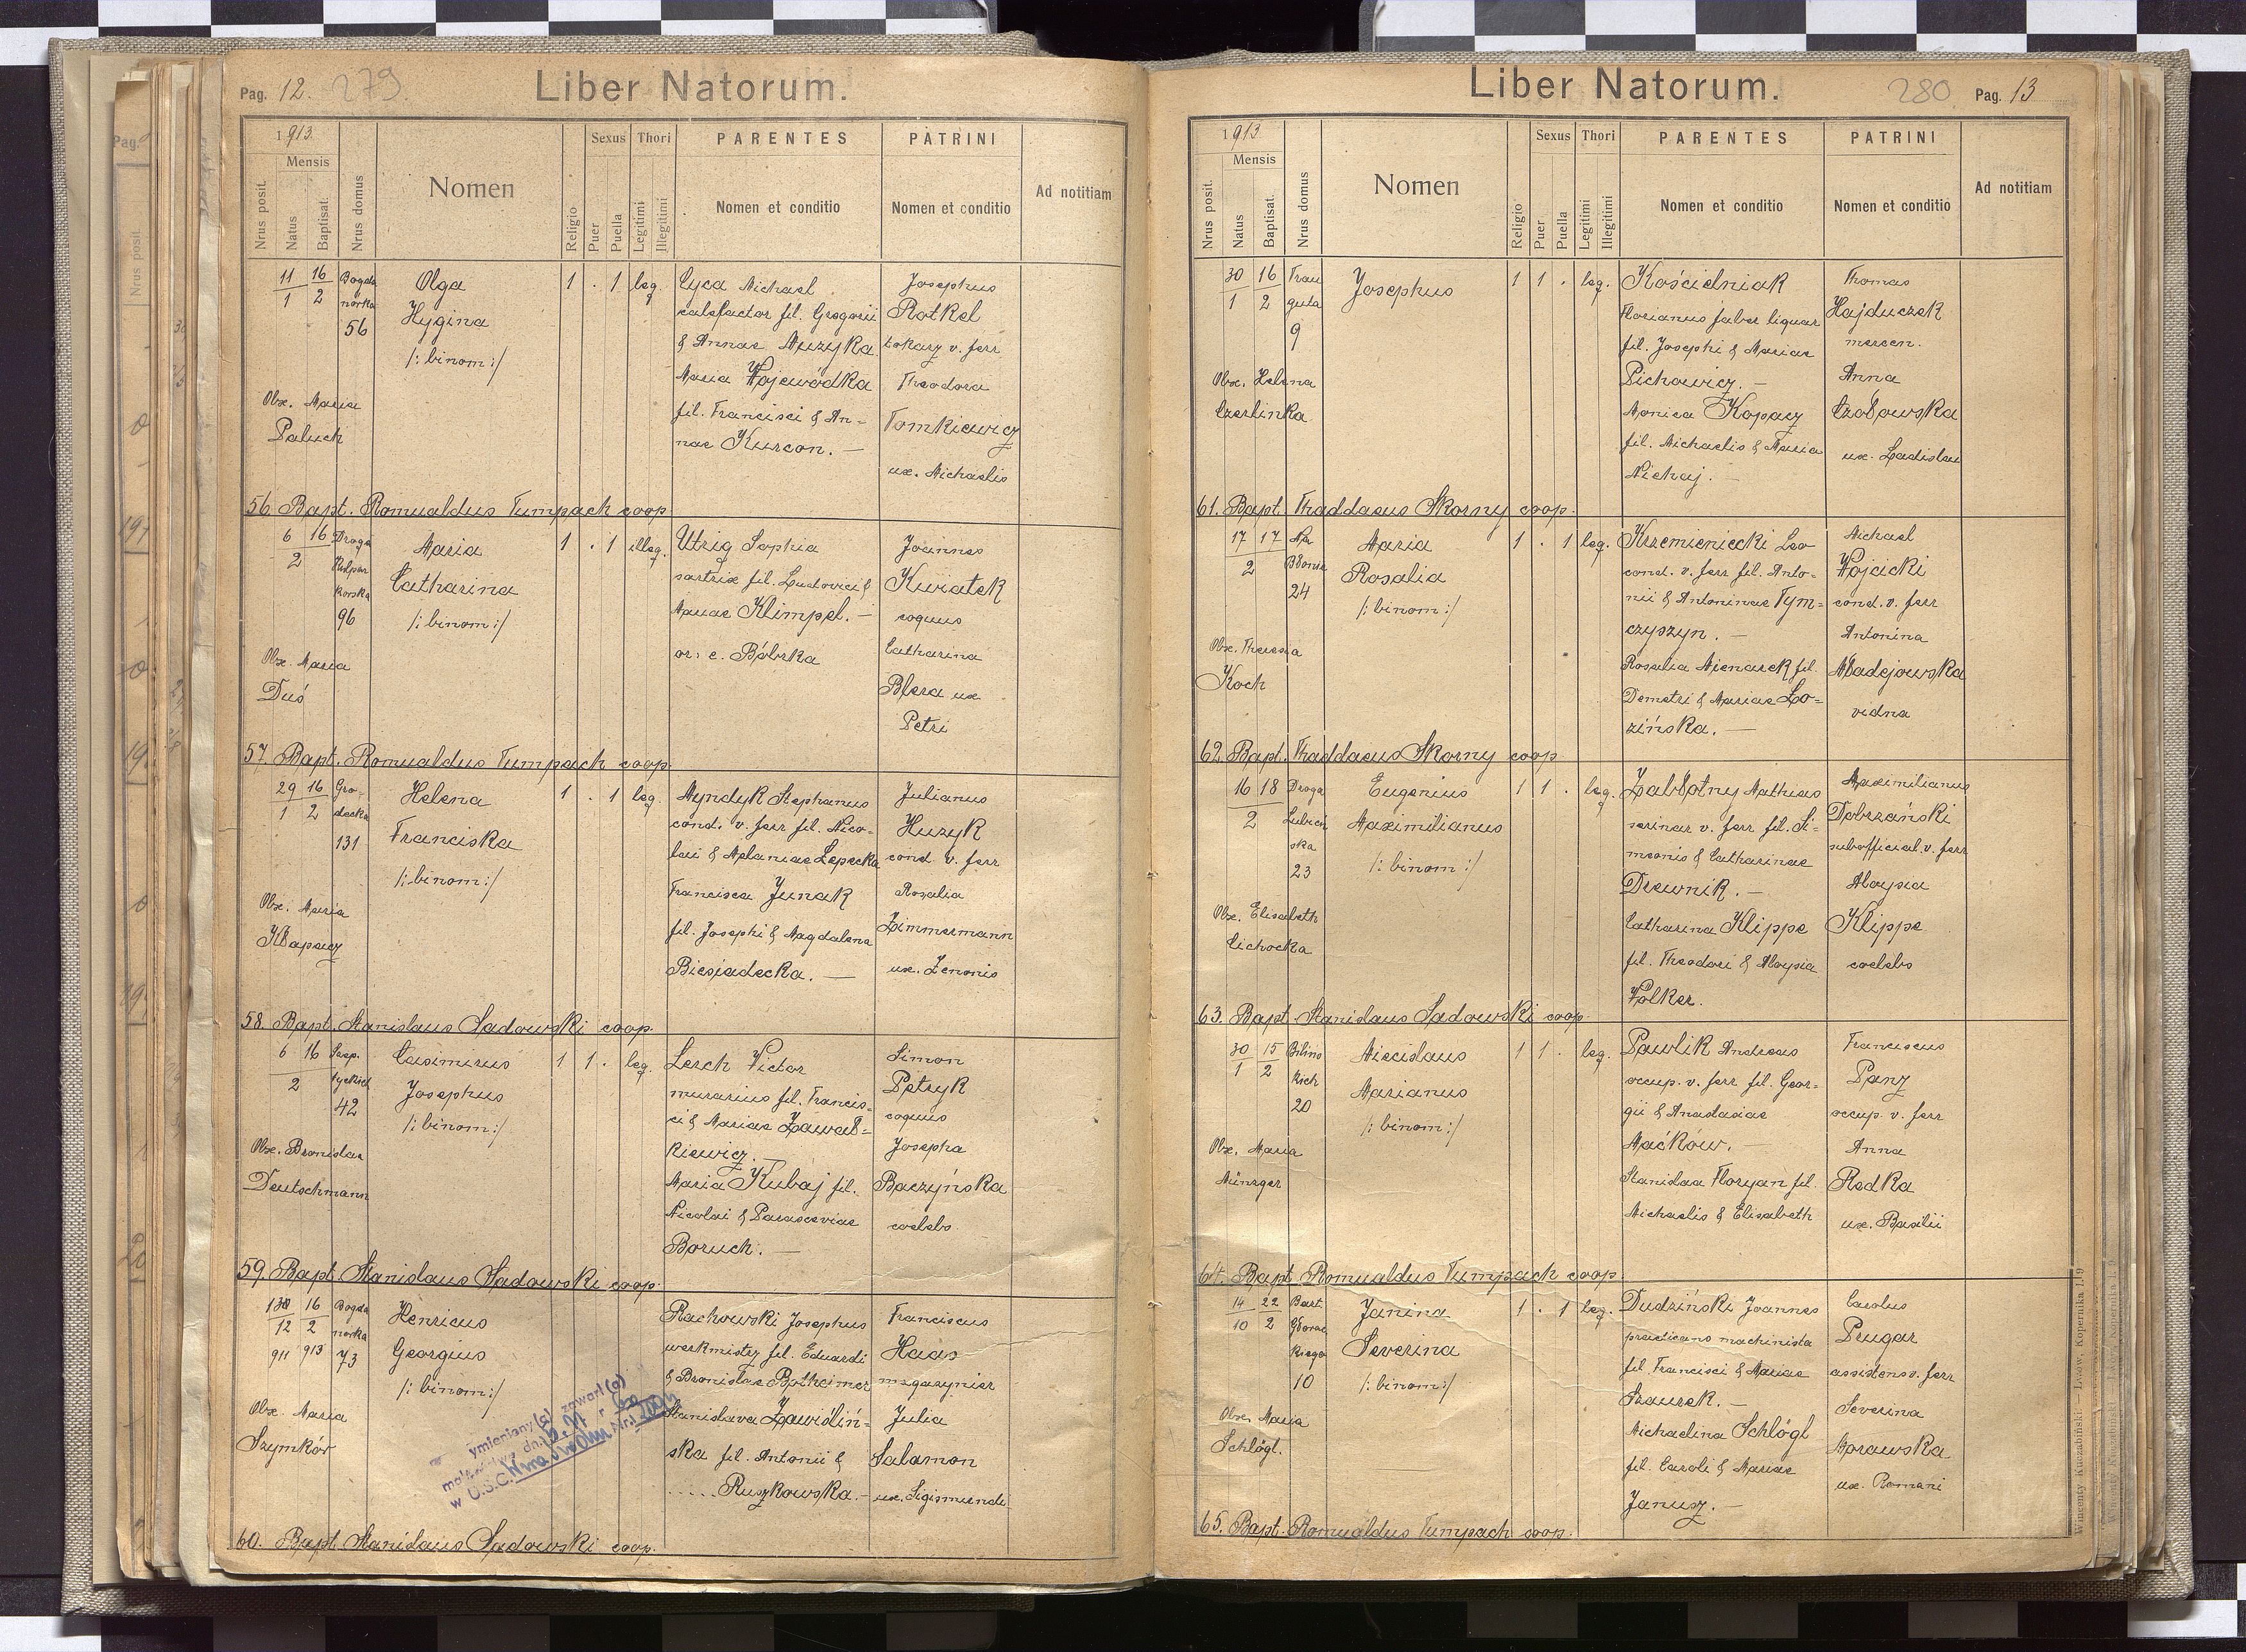 Pag. 12. 279.
Liber Natorum.
1913.
Mensis
Nrus posit.
Natus
Baptisat.
Nrus domus
Nomen
Religio
Sexus
Puer
Puella
Thori
Legitimi
Illegitimi
PARENTES
Nomen et conditio
PATRINI
Nomen et conditio
Ad notitiam
11 16
1 2
Bogda
nórka
56
Olga
Hygina
/: binom :/
1 . 1 leg.
Lyca Michael
calefactor fil. Gregorii
& Annae Muzyka
Maria Wojewódka
fil. Francisci & An=
nae Kurcon. —
Josephus
Rotkel
tokarz v. ferr
Theodora
Tomkiewicz
ux. Michaelis
Obx. Maria
Paluch
56. Bapt. Romualdus Tumpach coop
6 16
2
Droga
Kulpar
kowska
96
Maria
Catharina
/: binom :/
1 . 1 illeg.
Utzig Sophia
sartrix fil. Ludovici &
Mariae Klimpel. —
or. e. Bóbrka
Joannes
Kwiatek
coquus
Catharina
Blera ux
Petri
Obx. Maria
Duś
57. Bapt. Romualdus Tumpach coop.
29 16
1 2
Gro-
decka
131
Helena
Franciska
/: binom :/
1 . 1 leg.
Myndyk Stephanus
cond. v. ferr fil. Nico-
lai & Melaniae Lepecka
Francisca Junak
fil. Josephi & Magdalena
Biesiadecka. —
Julianus
Huzyk
cond. v. ferr
Rosalia
Zimmermann
ux. Zenonis
Obx. Maria
Kłapacz
58. Bapt. Stanislaus Sadowski coop.
6 16
2
42
Casimirus
Josephus
/: binom :/
1 1 . leg.
Lerch Victor
murarius fil. Francis-
ci & Mariae Zawał=
kiewicz.
Maria Kubaj fil.
Nicolai & Parasceviae
Boruch. —
Simon
Petryk
coquus
Josepha
Baczyńska
coelebs
Obx. Bronislaa
Deutschmann
59. Bapt. Stanislaus Sadowski coop.
16
12 2
911 913
Bogda
nórka
73
Henricus
Georgius
/: binom :/
Rachowski Josephus
werkmistrz fil. Eduardi
& Bronislae Botheimer
Stanislava Zawiśliń=
ska fil. Antonii &
..... Ruszkowska. —
Franciscus
Haas
magazynier
Julia
Salamon
ux. Sigismundi
Obx. Maria
Szymków
ymieniony(a) zawarł(a)
w U.S.C.
60. Bapt. Stanislaus Sadowski coop.
Liber Natorum.
280 Pag. 13
1913
Mensis
Nrus posit.
Natus
Baptisat.
Nrus domus
Nomen
Religio
Sexus
Puer
Puella
Thori
Legitimi
Illegitimi
PARENTES
Nomen et conditio
PATRINI
Nomen et conditio
Ad notitiam
30 16
1 2
Trau
guta
9
Josephus
1 1 . leg.
Kościelniak
Florianus faber lignar
fil. Josephi & Mariae
Pichowicz. —
Monica Kopacz
fil. Michaelis & Maria
Michaj. —
Thomas
Hajduczek
mercen.
Anna
Czołowska
ux. Ladislai
Obx. Helena
Czerlinka
61. Bapt. Thaddaeus Skorny coop.
17 17
2
Na
Błonie
24
Maria
Rosalia
/: binom :/
1 . 1 leg.
Krzemieniecki Leo
cond. v. ferr fil. Anto-
nii & Antoninae Tym=
czyszyn. —
Rosalia Mienarek fil.
Demetri & Mariae Lo=
zińska. —
Michael
Wojcicki
cond. v. ferr
Antonina
Madejowska
vidna
Obx. Theresia
Koch
62. Bapt. Thaddaeus Skorny coop
16 18
2
Droga
Lubień
ska
23
Eugenius
Maximilianus
/: binom :/
1 1 . leg.
Zabłotny Mathias
serinar v. ferr fil. Si=
meonis & Catharinae
Drewnik. —
Catharina Klippe
fil. Theodori & Aloysia
Wolker.
Maximilianus
Dobrzański
subofficial. v. ferr
Aloysia
Klippe
coelebs
Obx. Elisabeth
Cichocka
63. Bapt. Stanislaus Sadowski coop.
30 15
1 2
Bilins
kich
20
Miecislaus
Marianus
/: binom :/
1 1 . leg.
Pawlik Andreas
occup. v. ferr fil. Geor-
gii & Anastasiae
Maćków. —
Stanislaa Floryan fil.
Michaelis & Elisabeth
Franciscus
Panz
occup. v. ferr
Anna
Redka
ux. Basilii
Obx. Maria
Münzger
64. Bapt. Romualdus Tumpach coop
14 22
10 2
Bart.
Głowac
kiego
10
Janina
Severina
/: binom :/
1 . 1 leg.
Dudziński Joannes
practicans machinista
fil. Francisci & Mariae
Szaurek. —
Michaelina Schlögl
fil. Caroli & Mariae
Janusz. —
Carolus
Prugar
assistens v. ferr
Severina
Morawska
ux. Romani
Obx. Maria
Schlögl.
65. Bapt. Romualdus Tumpach coop.
Wincenty Kuczabiński — Lwów, Kopernika l. 19